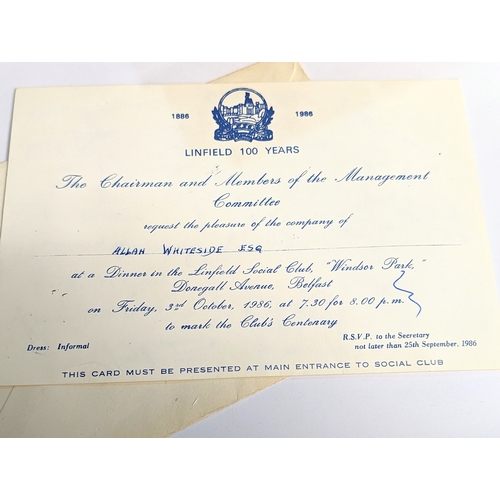 1886 1986
LINFIELD 100 YEARS
The Chairman and Members of the Management
Committee
request the pleasure of the company of
ALLAN WHITESIDE ESQ
at a Dinner in the Linfield Social Club, "Windsor Park,"
Donegall Avenue, Belfast
on Friday, 3rd October, 1986, at 7.30 for 8.00 p.m.
to mark the Club's Centenary
Dress: Informal
R.S.V.P. to the Secretary
not later than 25th September, 1986
THIS CARD MUST BE PRESENTED AT MAIN ENTRANCE TO SOCIAL CLUB